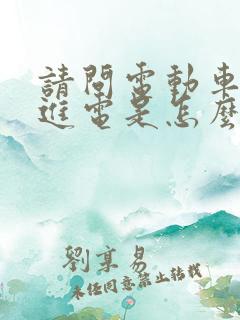 請問電動車
進電是怎麼
劉享易
未经同意禁止转载